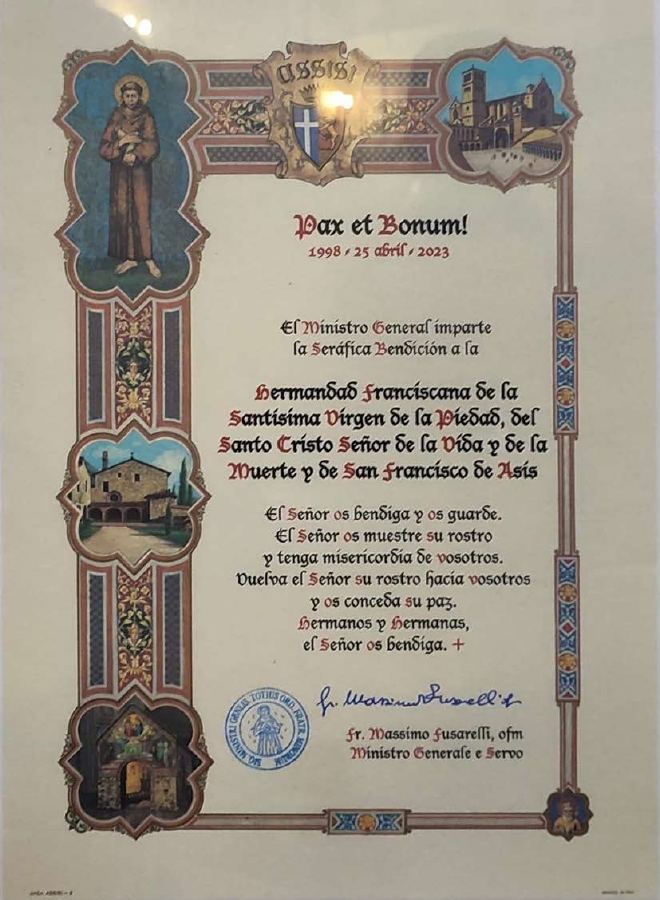 ASSISI
Pax et Bonum!
1998 - 25 abril - 2023
El Ministro General imparte
la Seráfica Bendición a la
Hermandad Franciscana de la
Santísima Virgen de la Piedad, del
Santo Cristo Señor de la Vida y de la
Muerte y de San Francisco de Asís
El Señor os bendiga y os guarde.
El Señor os muestre su rostro
y tenga misericordia de vosotros.
Vuelva el Señor su rostro hacia vosotros
y os conceda su paz.
Hermanos y Hermanas,
el Señor os bendiga. +
Fr. Massimo Fusarelli, ofm
Ministro Generale e Servo